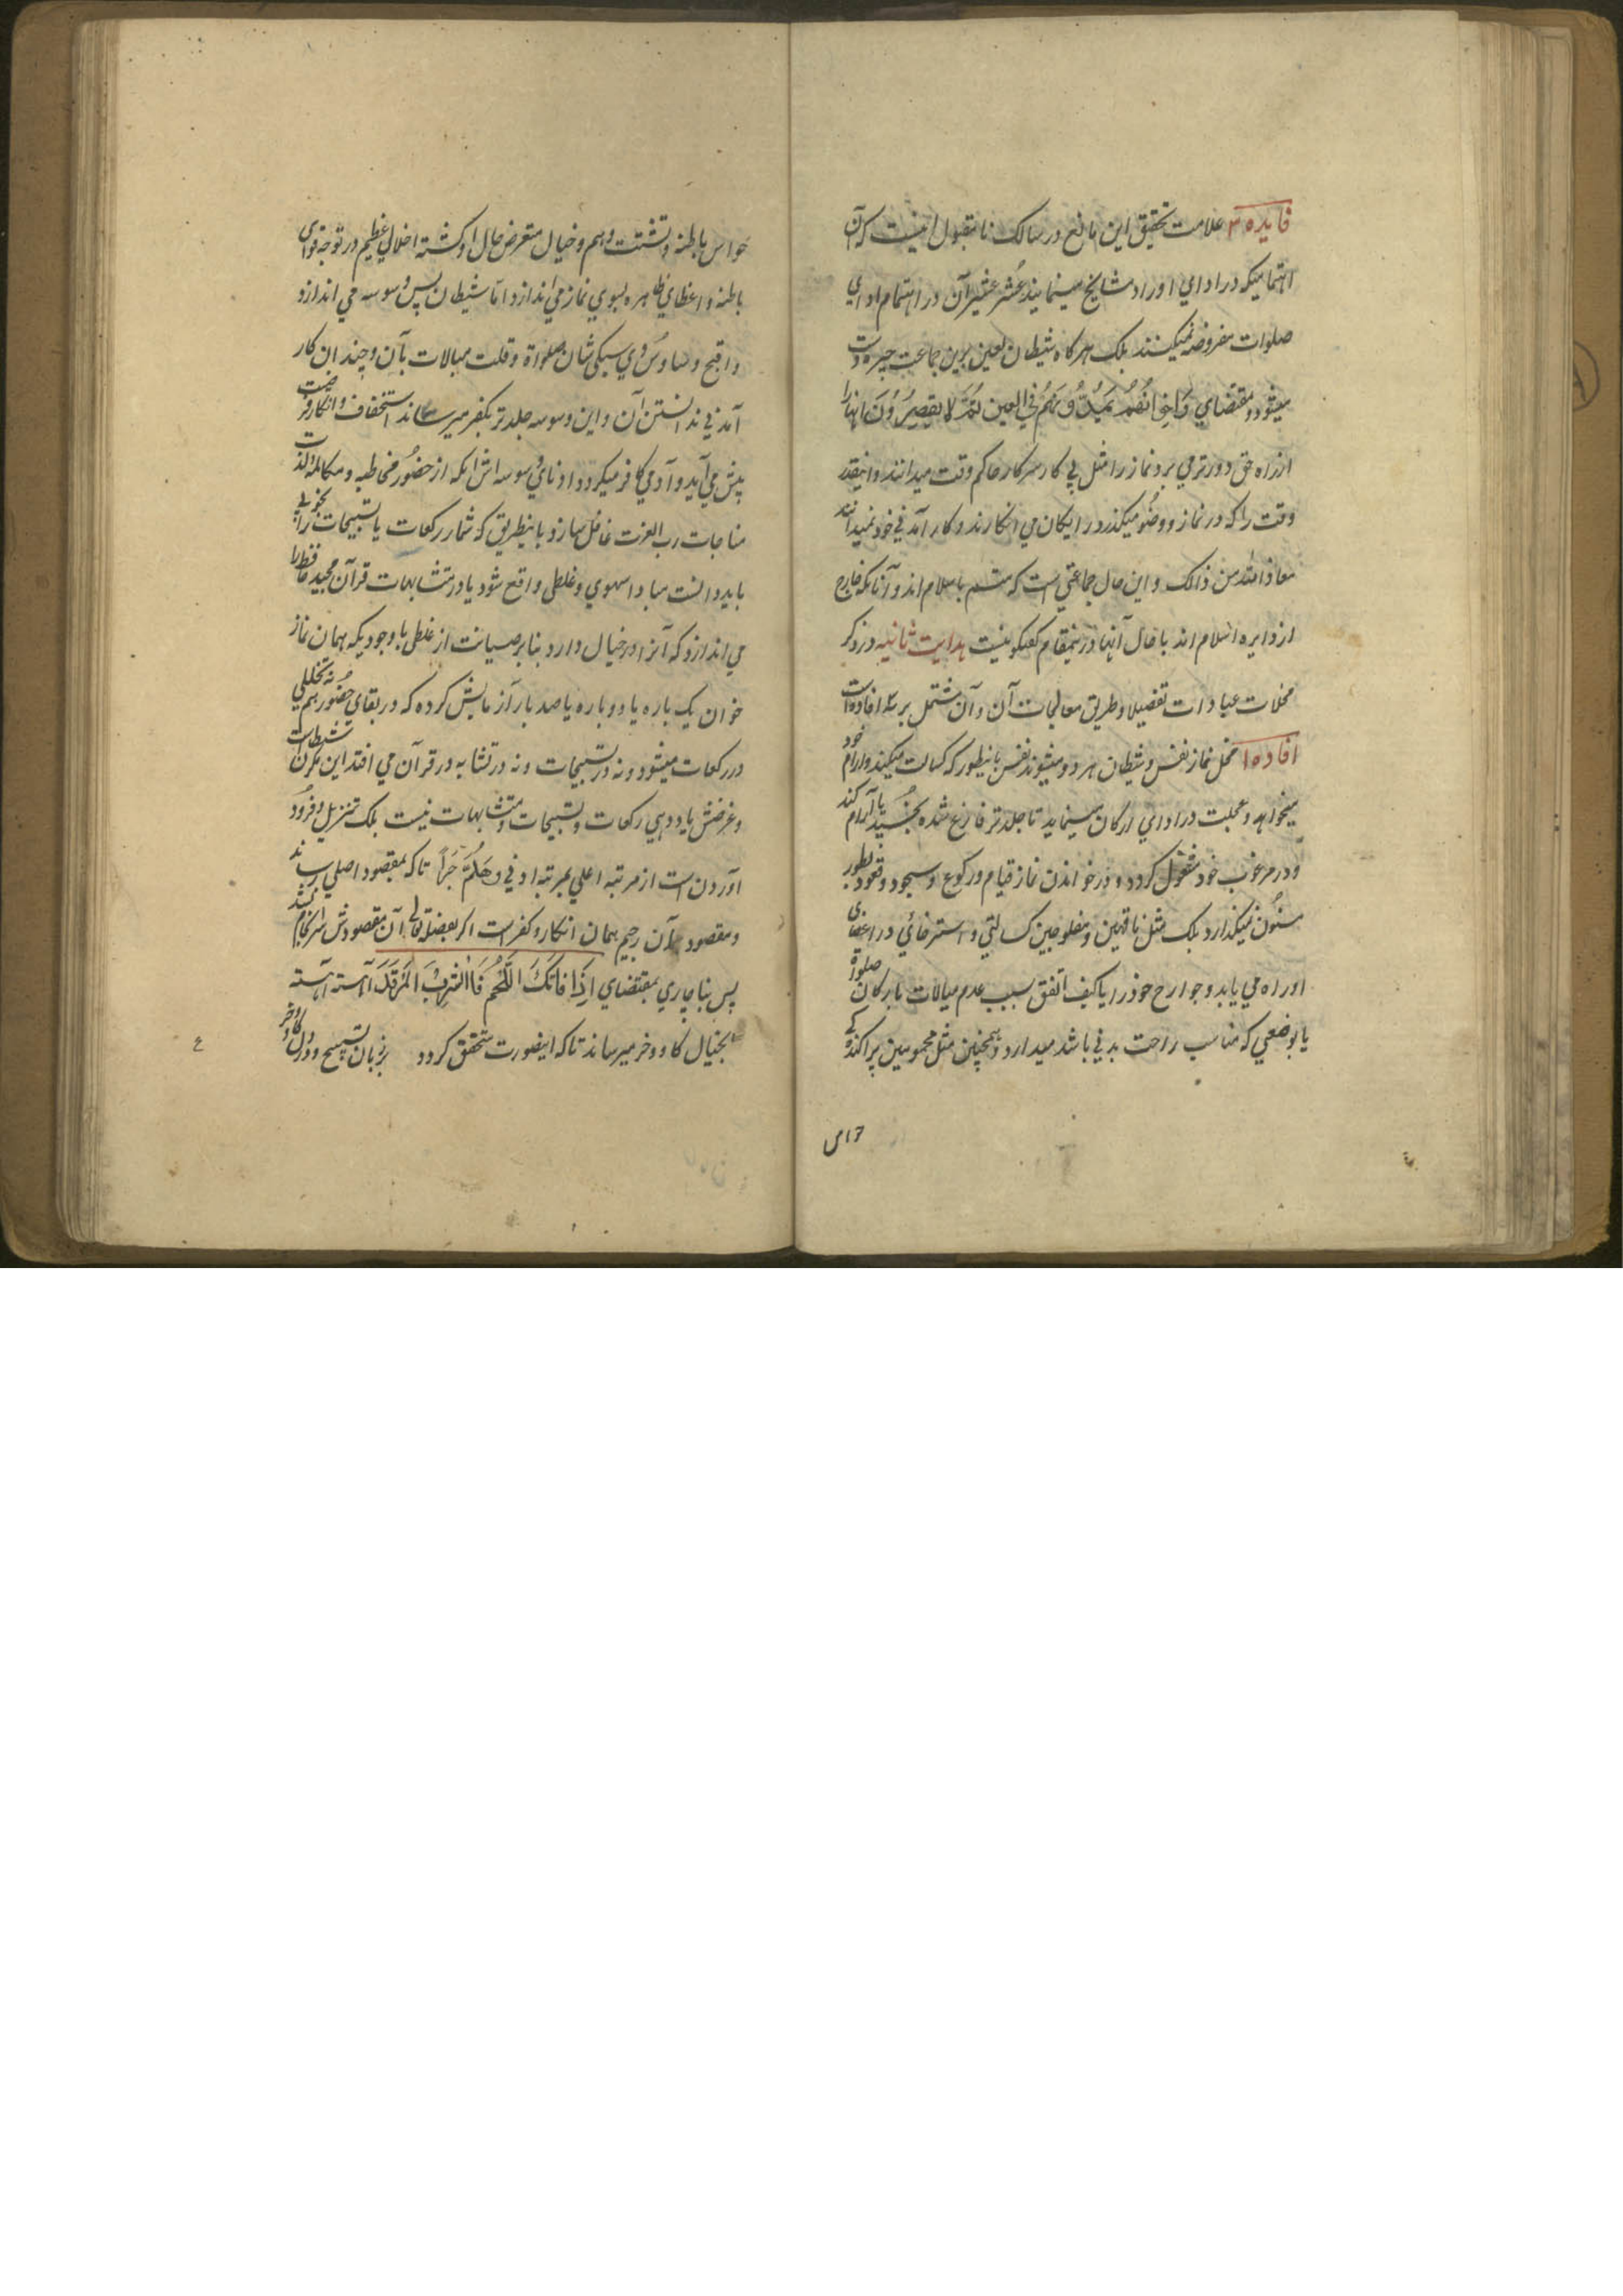 فایده ۳ علامت تحقیق این مانع در سالک نا مقبول اینست که آن
اهتمامیکه در ادای اوراد مشایخ مینمایند عُشر عشیر آن در اهتمام ادای
صلوات مفروضه نمیکنند بلکه هرگاه شیطان لعین برین جماعت چیره دست
میشود و بمقتضای وَاِخوانُهُم یَمُدُّونَهُم فِی الغین ثُمَّ لا یُقصِرُونَ انها را
از راه حق دورتر می برد نماز را مثل بی کار سرکار حاکم وقت میدانند و اینقدر
وقت را که در نماز و وضو میگذرد رایگان می انگارند و کار آمدنی خود نمیدانند
معاذ الله من ذالک و این حال جماعتی است که متسم باسلام اند و آنانکه خارج
از دایره اسلام اند با حال آنها درینمقام گفتگو نیست هدایت ثانیه در ذکر
مخلات عبادات تفصیلا و طریق معالجات آن و آن مشتمل بر سه افاده است
افاده ۱ مخل نماز نفس و شیطان هر دو میشوند نفس بانیطور که کسالت میکند و آرام خود
میخواهد و عجلت در ادای ارکان مینماید تا جلدتر فارغ شده بخُسپد یا آرام کند
و در مرغوب خود مشغول گردد و در خواندن نماز قیام و رکوع و سجود و قعود بطور
مسنون نمیگذارد بلکه مثل ناقهین و مفلوجین کسالتی و استرخائی در اعضای
او راه می یابد و جوارح خود را کیف اتفق بسبب عدم مبالات بارکان صلوة
یا بوضعی که مناسب راحت بدنی باشد میدارد و همچنین مثل محمومین پراکندگی
حواس باطنه و تشتت وهم و خیال متعرض حال او گشته اخلال عظیم در توجه قوای
باطنه و اعظای ظاهره بسوی نماز می اندازد اما شیطان پس وسوسه می اندازد
و اقبح وساوس وی سبکی شان صلواة و قلت مبالات بآن و چندان کار
آمدنی ندانستن آن و این وسوسه جلدتر بکفر میرساند استخفاف و انکار فرضیت
پیش می آید و آدمی کافر میگردد و ادنای وسوسه اش انکه از حضور مخاطبه و مکالمه لذت
مناجات رب العزت غافل سازد بانیطریق که شمار رکعات یا تسبیحات را بخوبی
باید دانست مبادا سهوی و غلطی واقع شود یا در متشابهات قرآن مجید حافظ را
می اندازد که آنرا در خیال دارد بنا بر صیانت از غلطی با وجودیکه همان نماز
خوان یک باره یا دو باره یا صد بار آزمایش کرده که در بقای حضور هم نه تخللی
در رکعات میشود و نه در تسبیحات و نه در تشابه در قرآن می افتد این مکر آن شیطانست
و غرضش یاد دهی رکعات و تسبیحات و متشابهات نیست بلکه تنزیل و فرود
آوردن است از مرتبه اعلی بمرتبه ادنی و هَلُمَّ جَرّاً تا که بمقصود اصلی رساند
و مقصود آن رجیم همان انکار و کفر است اگر بفضله تعالی آن مقصودش سرانجام نشد
پس بناچاری بمقتضای اِذا فاتَکَ اللَّحمُ فَاشرَبِ المَرَقَةَ آهسته آهسته
بخیال گاو و خر میرساند تا که اینصورت متحقق گردد بزبان تسبیح و در دل گاو و خر